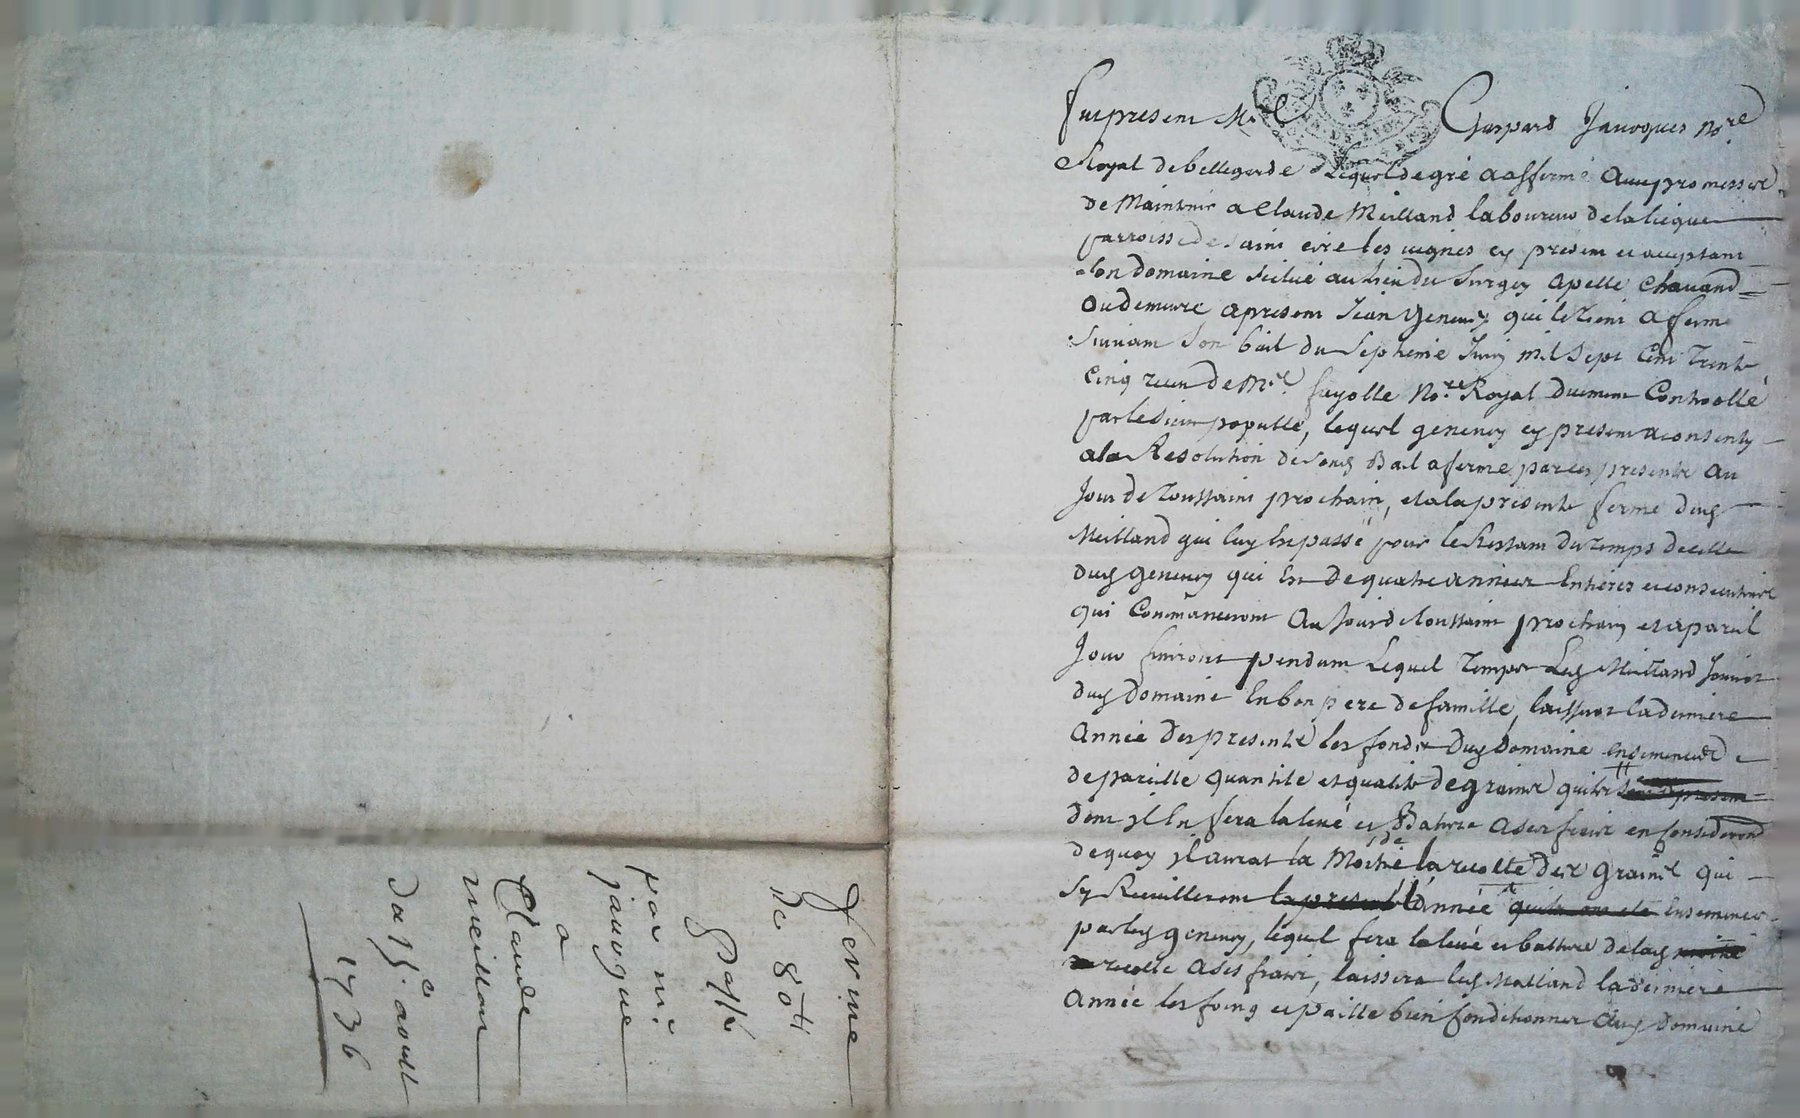 Fut present Me Gaspard Jauvoques nore
Royal de bellegarde Lequel de gré a affermé avec promesse
de Maintenir a Claude Meilland laboureur de la
parroisse de saint cire les vignes cy present et acceptant
son domaine scitué au lieu du Surgey apelle Chavand
ou demeure a present Jean Geneney qui le tient a ferme
suivant son bail du septieme Juin mil sept Cent Trente
Cinq receu de Me fayolle Nore Royal duement Controollé
par le sieur populle, lequel geneney cy present a consenty
a la Resolution de son Bail a ferme par ces presente au
Jour de Toussaint prochain, et a la presente ferme dud
Meilland qui luy est passé pour le Restant du temps de celle
dud Geneney qui Est De quatre années Entieres et consecutive
qui Commanceront Au Jour de toussaint prochain et a pareil
Jour finiront pendant Lequel Temps Led Meilland Jouira
dud Domaine En bon pere de famille, laissera la derniere
Année des presente les fonds dud Domaine ensemencer
de pareille quantité et qualité de graine qu'il
dont il En fera la levé et Batture a ses frais en Consideration
de quoy il aurat la Moitié de la recolte des graine qui
sy Recuilleront l'année Ensemencer
par led geneney, lequel fera la levé et batture de lad
recolte a ses fraix, laissera led Meilland la derniere
Année les foins et paille bien Conditionner aud Domaine
ferme
De 80 #
passé
par me
jauvoque
a
Claude
meilland
Du 15e aoust
1736